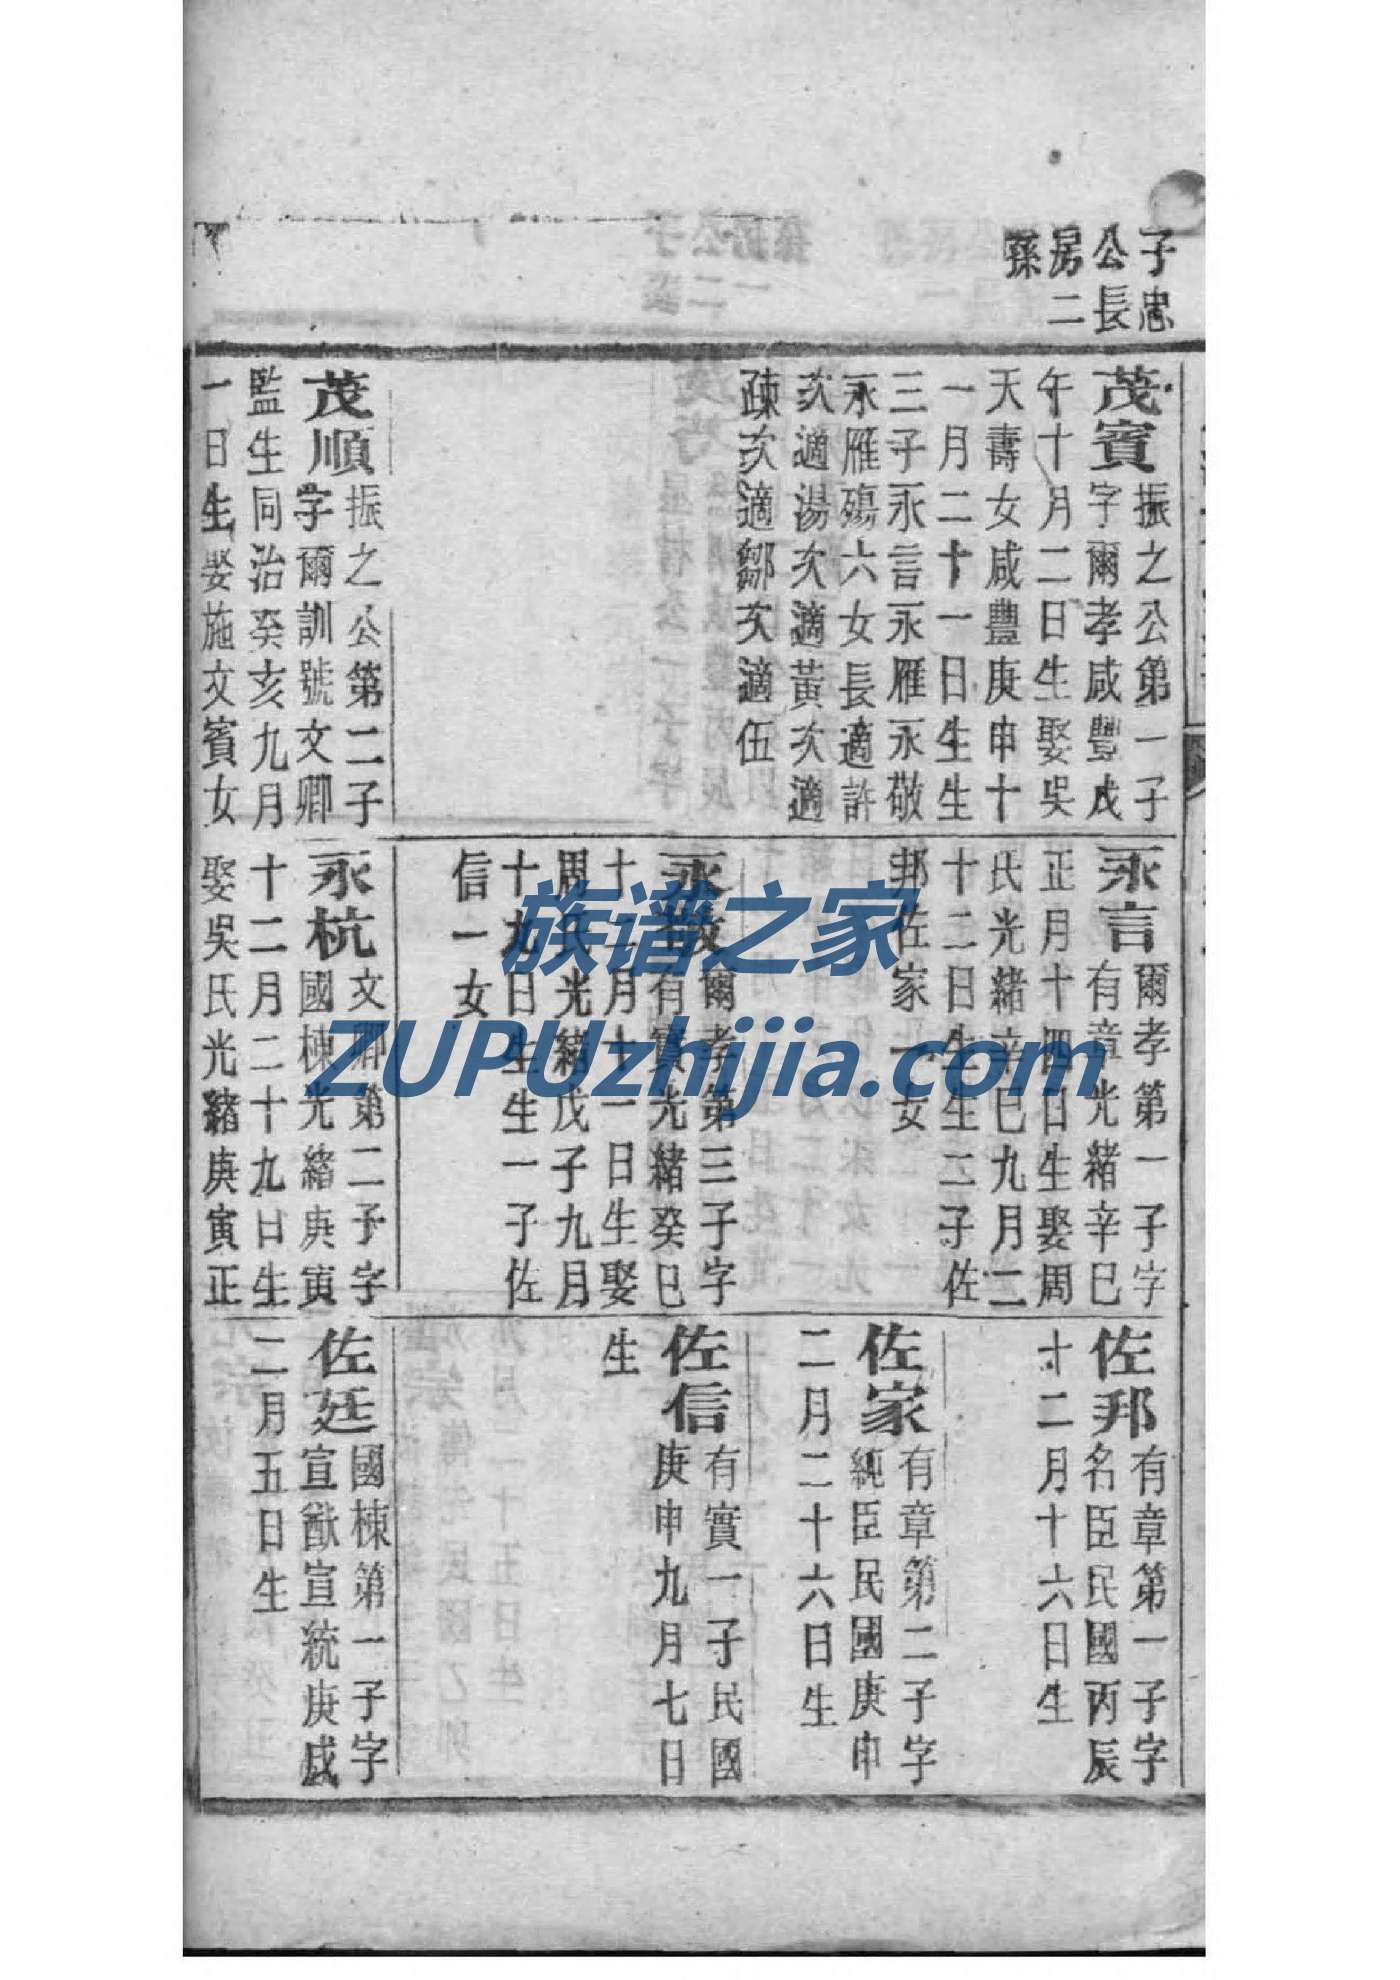 子忠
公長
房二
孫
茂賓
振之公第一子
字爾孝咸豐戊
午十月二日生娶吳
天壽女咸豐庚申十
一月二十一日生生
三子永言永雁永敬
永雁殤六女長適許
次適湯次適黃次適
疎次適鄒次適伍
茂順
振之公第二子
字爾訓號文卿
監生同治癸亥九月
一日生娶施文賓女
永言
爾孝第一子字
有章光緒辛巳
正月十四日生娶周
氏光緒辛巳九月二
十二日生生二子佐
邦佐家一女
永敬
爾孝第三子字
有實光緒癸巳
十二月十一日生娶
周氏光緒戊子九月
十九日生生一子佐
信一女
永杭
文卿第二子字
國棟光緒庚寅
十二月二十九日生
娶吳氏光緒庚寅正
佐邦
有章第一子字
名臣民國丙辰
十二月十六日生
佐家
有章第二子字
純臣民國庚申
二月二十六日生
佐信
有實一子民國
庚申九月七日
生
佐廷
國棟第一子字
宣猷宣統庚戌
二月五日生
族谱之家
ZUPUzhijia.com